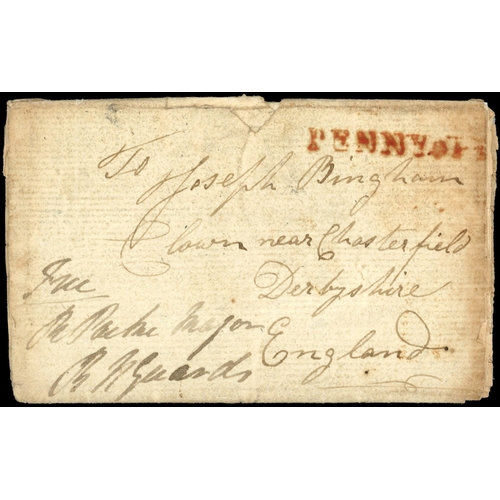 PENNY
To
Joseph Bingham
Clown near Chasterfield
Derbyshire
England
Free
Major
R H Guards